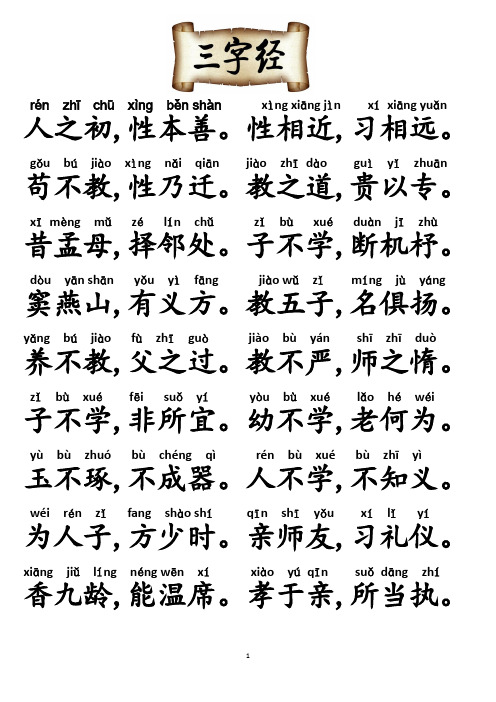 三字经
rén zhī chū xìng běn shàn xìng xiāng jìn xí xiāng yuǎn
人之初,性本善。性相近,习相远。
gǒu bú jiào xìng nǎi qiān jiào zhī dào guì yǐ zhuān
苟不教,性乃迁。教之道,贵以专。
xī mèng mǔ zé lín chǔ zǐ bù xué duàn jī zhù
昔孟母,择邻处。子不学,断机杼。
dòu yān shān yǒu yì fāng jiào wǔ zǐ míng jù yáng
窦燕山,有义方。教五子,名俱扬。
yǎng bú jiào fù zhī guò jiào bù yán shī zhī duò
养不教,父之过。教不严,师之惰。
zǐ bù xué fēi suǒ yí yòu bù xué lǎo hé wéi
子不学,非所宜。幼不学,老何为。
yù bù zhuó bù chéng qì rén bù xué bù zhī yì
玉不琢,不成器。人不学,不知义。
wéi rén zǐ fang shào shí qīn shī yǒu xí lǐ yí
为人子,方少时。亲师友,习礼仪。
xiāng jiǔ líng néng wēn xí xiào yú qīn suǒ dāng zhí
香九龄,能温席。孝于亲,所当执。
1